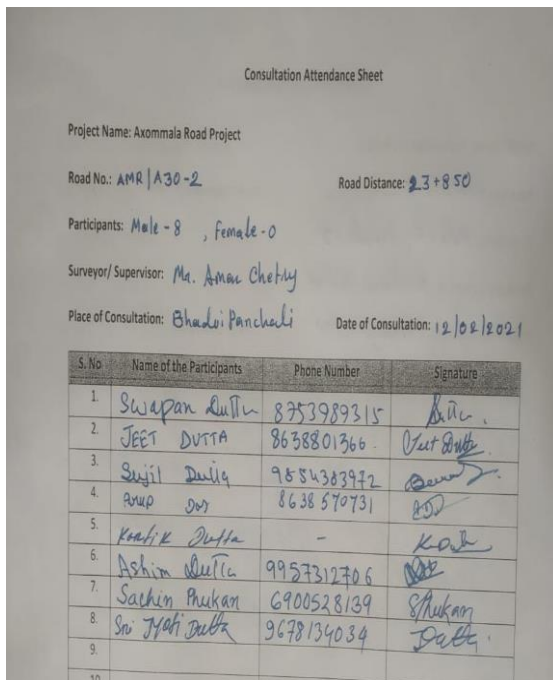 Consultation Attendance Sheet
Project Name: Axommala Road Project
Road No.: AMR|A30-2 Road Distance: 23+850
Participants: Male - 8 , Female - 0
Surveyor/ Supervisor: Mr. Aman Chetry
Place of Consultation: Bhadoi Panchali Date of Consultation: 12/02/2021
S. No Name of the Participants Phone Number Signature
1. Swapan Dutta 8753989315 Dutta.
2. JEET DUTTA 8638801366. Jeet Dutta.
3. Sujil Dutta 9854383972
4. Anup Das 8638570731
5. Kartik Dutta -
6. Ashim Dutta 9957312706
7. Sachin Phukan 6900528139 SPhukan
8. Sri Jyoti Dutta 9678134034 Dutta.
9.
10